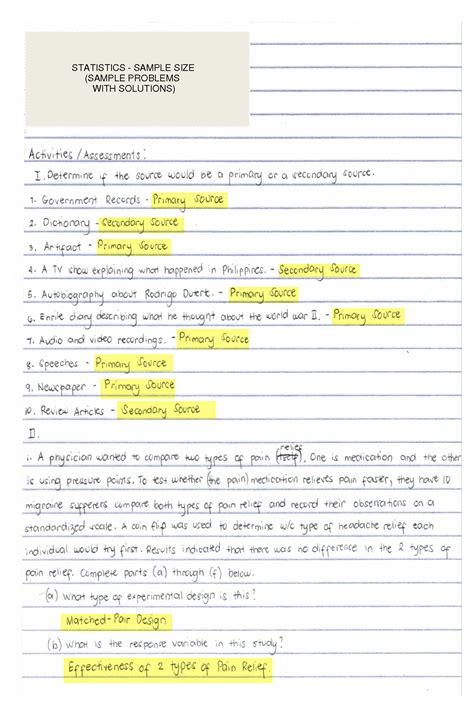 STATISTICS - SAMPLE SIZE
(SAMPLE PROBLEMS
WITH SOLUTIONS)
Activities / Assessments:
I. Determine if the source would be a primary or a secondary source.
1. Government Records - Primary Source
2. Dictionary - Secondary Source
3. Artifact - Primary Source
4. A TV show explaining what happened in Philippines. - Secondary Source
5. Autobiography about Rodrigo Duert. - Primary Source
6. Enrile diary describing what he thought about the world war II. - Primary Source
7. Audio and video recordings. - Primary Source
8. Speeches - Primary Source
9. Newspaper - Primary Source
10. Review Articles - Secondary Source
II.
1. A physician wanted to compare two types of pain relief. One is medication and the other
is using pressure points. To test whether (the pain) medication relieves pain faster, they have 10
migraine sufferers compare both types of pain relief and record their observations on a
standardized scale. A coin flip was used to determine w/c type of headache relief each
individual would try first. Results indicated that there was no difference in the 2 types of
pain relief. Complete parts (a) through (f) below.
(a) What type of experimental design is this?
Matched-Pair Design
(b) What is the response variable in this study?
Effectiveness of 2 types of Pain Relief.